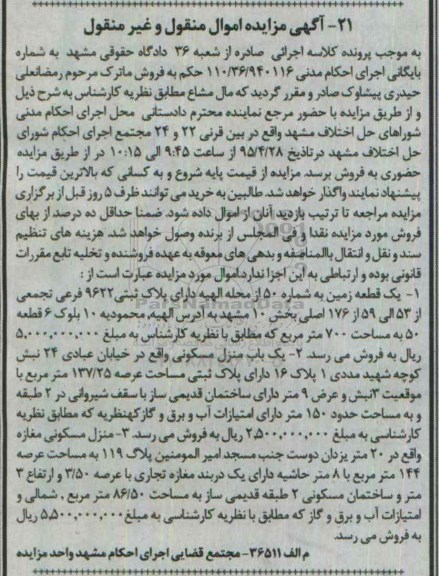 ۲۱- آگهی مزایده اموال منقول و غیر منقول
به موجب پرونده کلاسه اجرائی صادره از شعبه ۳۶ دادگاه حقوقی مشهد به شماره
بایگانی اجرای احکام مدنی ۱۱۰/۳۶/۹۴۰۱۱۶ حکم به فروش ماترک مرحوم رمضانعلی
حیدری پیشاوک صادر و مقرر گردید که مال مشاع مطابق نظریه کارشناس به شرح ذیل
و از طریق مزایده با حضور مرجع نماینده محترم دادستانی محل اجرای احکام مدنی
شوراهای حل اختلاف مشهد واقع در بین قرنی ۲۲ و ۲۴ مجتمع اجرای احکام شورای
حل اختلاف مشهد درتاذیخ ۹۵/۴/۲۸ از ساعت ۹:۴۵ الی ۱۰:۱۵ در از طریق مزایده
حضوری به فروش برسد. مزایده از قیمت پایه شروع و به کسانی که بالاترین قیمت را
پیشنهاد نمایند واگذار خواهد شد. طالبین به خرید می توانند ظرف ۵ روز قبل از برگزاری
مزایده مراجعه تا ترتیب بازدید آنان از اموال داده شود. ضمنا حداقل ده درصد از بهای
فروش مورد مزایده نقدا و فی المجلس از برنده وصول خواهد شد. هزینه های تنظیم
سند و نقل و انتقال باالمناصفه و بدهی های معوقه به عهده فروشنده و تخلیه تابع مقررات
قانونی بوده و ارتباطی به این اجزا ندارد.اموال مورد مزایده عبارت است از :
۱- یک قطعه زمین به شماره ۵۰ از محله الهیه دارای پلاک ثبتی ۹۶۲۲ فرعی تجمعی
از ۵۳ الی ۵۹ از ۱۷۶ اصلی بخش ۱۰ مشهد به آدرس الهیه، محمودیه ۱۰ بلوک ۶ قطعه
۵۰ به مساحت ۷۰۰ متر مربع که مطابق با نظریه کارشناس به مبلغ ۵,۰۰۰,۰۰۰,۰۰۰
ریال به فروش می رسد. ۲- یک باب منزل مسکونی واقع در خیابان عبادی ۲۴ نبش
کوچه شهید مددی ۱ پلاک ۱۶ دارای پلاک ثبتی مساحت عرصه ۱۳۷/۲۵ متر مربع با
موقعیت ۳نبش و عرض ۹ متر دارای ساختمان قدیمی ساز با سقف شیروانی در ۲ طبقه
و به مساحت حدود ۱۵۰ متر دارای امتیازات آب و برق و گازکهنظریه که مطابق نظریه
کارشناسی به مبلغ ۲,۵۰۰,۰۰۰,۰۰۰ ریال به فروش می رسد. ۳- منزل مسکونی مغازه
واقع در ۲۰ متر یزدان دوست جنب مسجد امیر المومنین پلاک ۱۱۹ به مساحت عرصه
۱۴۴ متر مربع با ۸ متر حاشیه دارای یک دربند مغازه تجاری با عرصه ۳/۵۰ و ارتفاع ۳
متر و ساختمان مسکونی ۲ طبقه قدیمی ساز به مساحت ۸۶/۵۰ متر مربع ، شمالی و
امتیازات آب و برق و گاز که مطابق با نظریه کارشناسی به مبلغ ۵,۵۰۰,۰۰۰,۰۰۰ ریال
به فروش می رسد.
م الف ۳۶۵۱۱- مجتمع قضایی اجرای احکام مشهد واحد مزایده